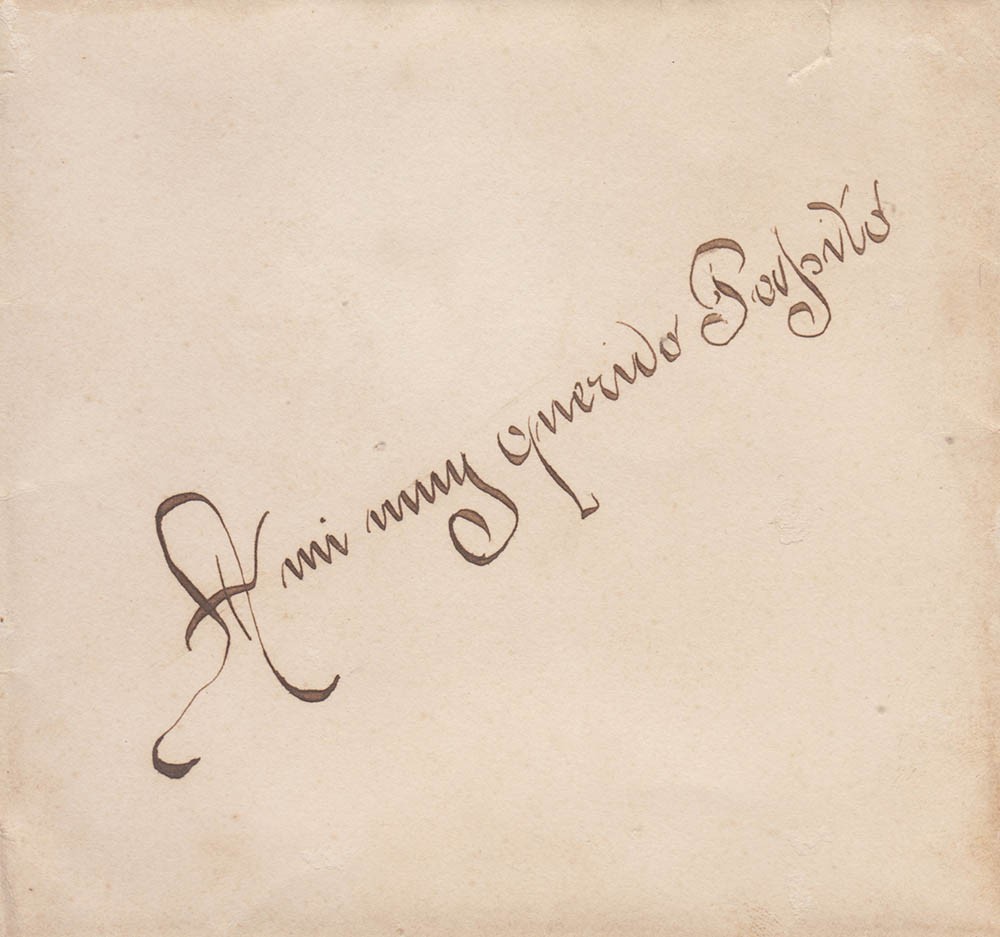 A mi muy querido Papito